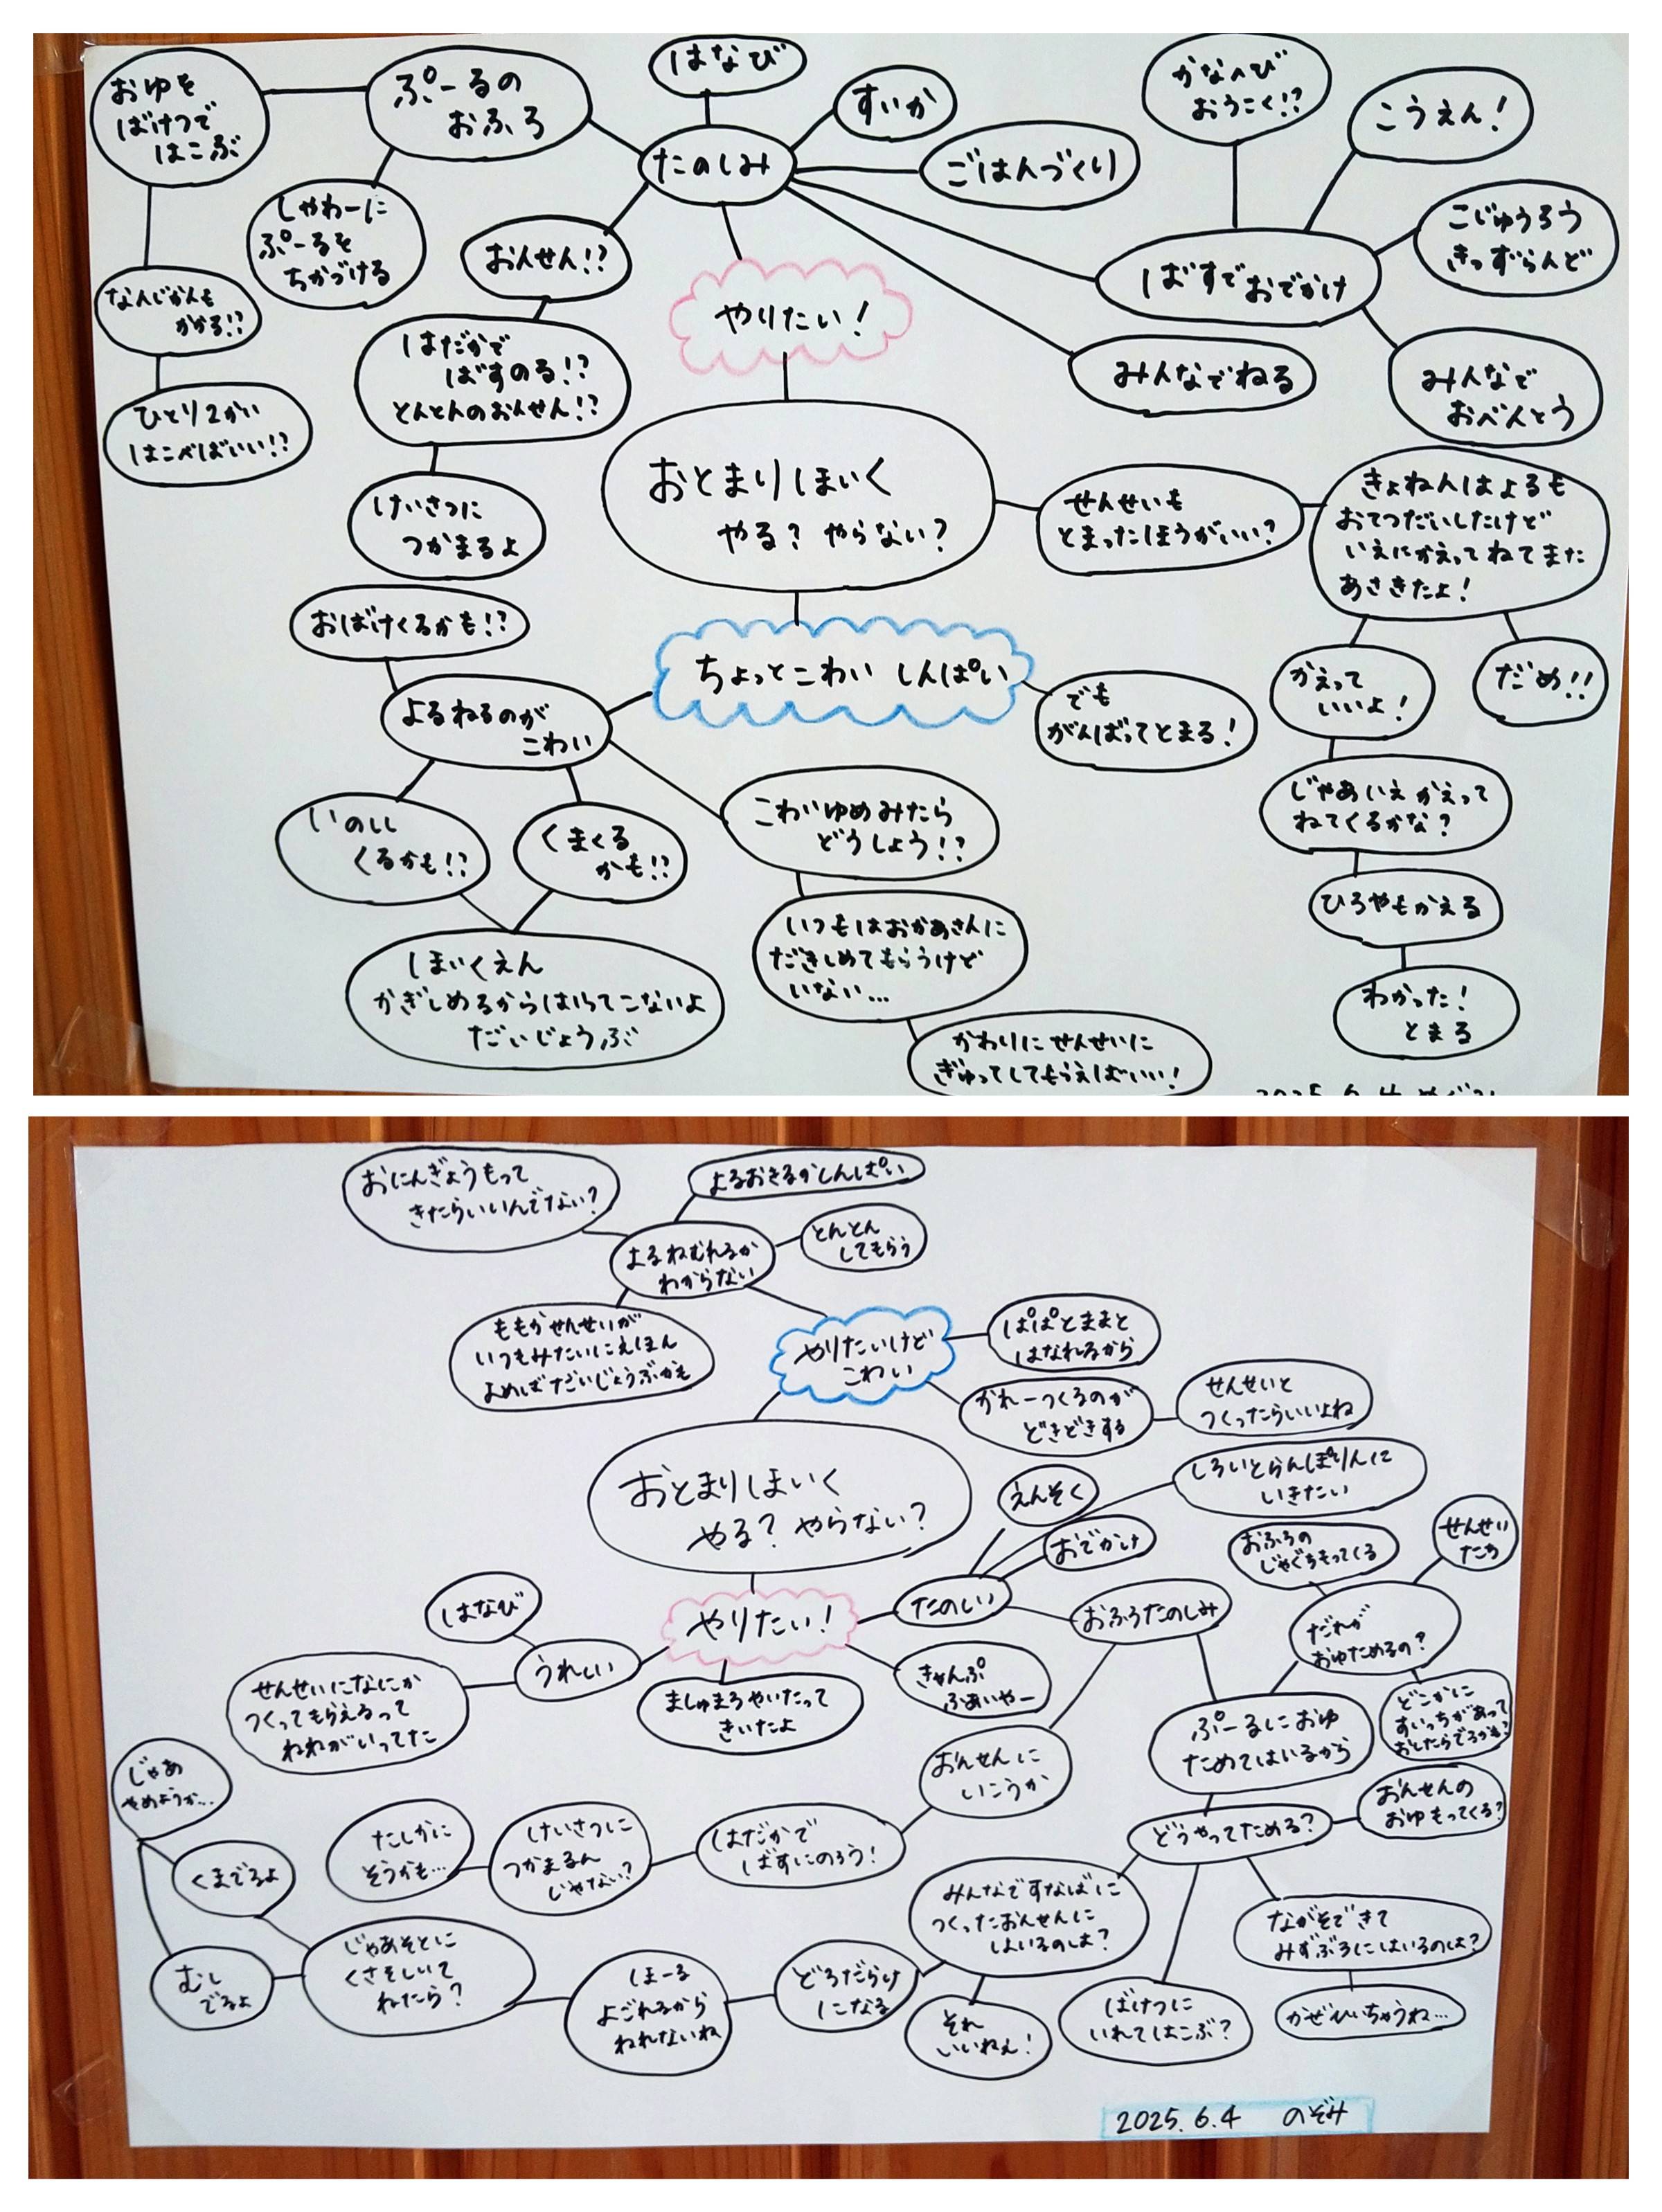 おゆを
ばけつで
はこぶ
ぷーるの
おふろ
はなび
すいか
たのしみ
ごはんづくり
かなへび
おうこく!?
こうえん!
しゃわーに
ぷーるを
ちかづける
おんせん!?
こじゅうろう
きっずらんど
ばすでおでかけ
なんじかんも
かかる!?
やりたい!
はだかで
ばすのる!?
とんとんのおんせん!?
みんなでねる
みんなで
おべんとう
ひとり2かい
はこべばいい!?
おとまりほいく
やる? やらない?
せんせいも
とまったほうがいい?
きょねんはよるも
おてつだいしたけど
いえにかえってねてまた
あさきたよ!
けいさつに
つかまるよ
おばけくるかも!?
ちょっとこわい しんぱい
よるねるのが
こわい
でも
がんばってとまる!
かえって
いいよ!
だめ!!
いのしし
くるかも!?
くまくる
かも!?
こわいゆめみたら
どうしよう!?
じゃあいえかえって
ねてくるかな?
ひろやもかえる
しほいくえん
かぎしめるからはいってこないよ
だいじょうぶ
いつもはおかあさんに
だきしめてもらうけど
いない…
わかった!
とまる
かわりにせんせいに
ぎゅってしてもらえばいい!
おにんぎょうもって
きたらいいんでない?
よるおきるかしんぱい
よるねむれるか
わからない
とんとん
してもらう
ももかせんせいが
いつもみたいにえほん
よめばだいじょうぶかも
やりたいけど
こわい
ぱぱとままと
はなれるから
かれーつくるのが
どきどきする
せんせいと
つくったらいいよね
おとまりほいく
やる? やらない?
えんそく
しろいとらんぽりんに
いきたい
おでかけ
おふろの
じゃぐちもってくる
せんせい
たち
はなび
やりたい!
たのしい
おふろたのしみ
だれが
おゆためるの?
うれしい
せんせいになにか
つくってもらえるって
ねねがいってた
ましゅまろやいたって
きいたよ
きゃんぷ
ふぁいやー
ぷーるにおゆ
ためてはいるから
どこかに
すいっちがあって
おしたらでるかも?
じゃあ
やめようか…
おんせんに
いこうか
どうやってためる?
おんせんの
おゆもってくる?
たしかに
そうかも…
けいさつに
つかまるん
じゃない?
はだかで
ばすにのろう!
くまでるよ
みんなですなばに
つくったおんせんに
はいるのは?
ながそできて
みずぶろにはいるのは?
むし
でるよ
じゃあそとに
くさをしいて
ねたら?
ほーる
よごれるから
ねれないね
どろだらけ
になる
それ
いいねぇ!
ばけつに
いれてはこぶ?
かぜひいちゃうね…
2025.6.4 のぞみ